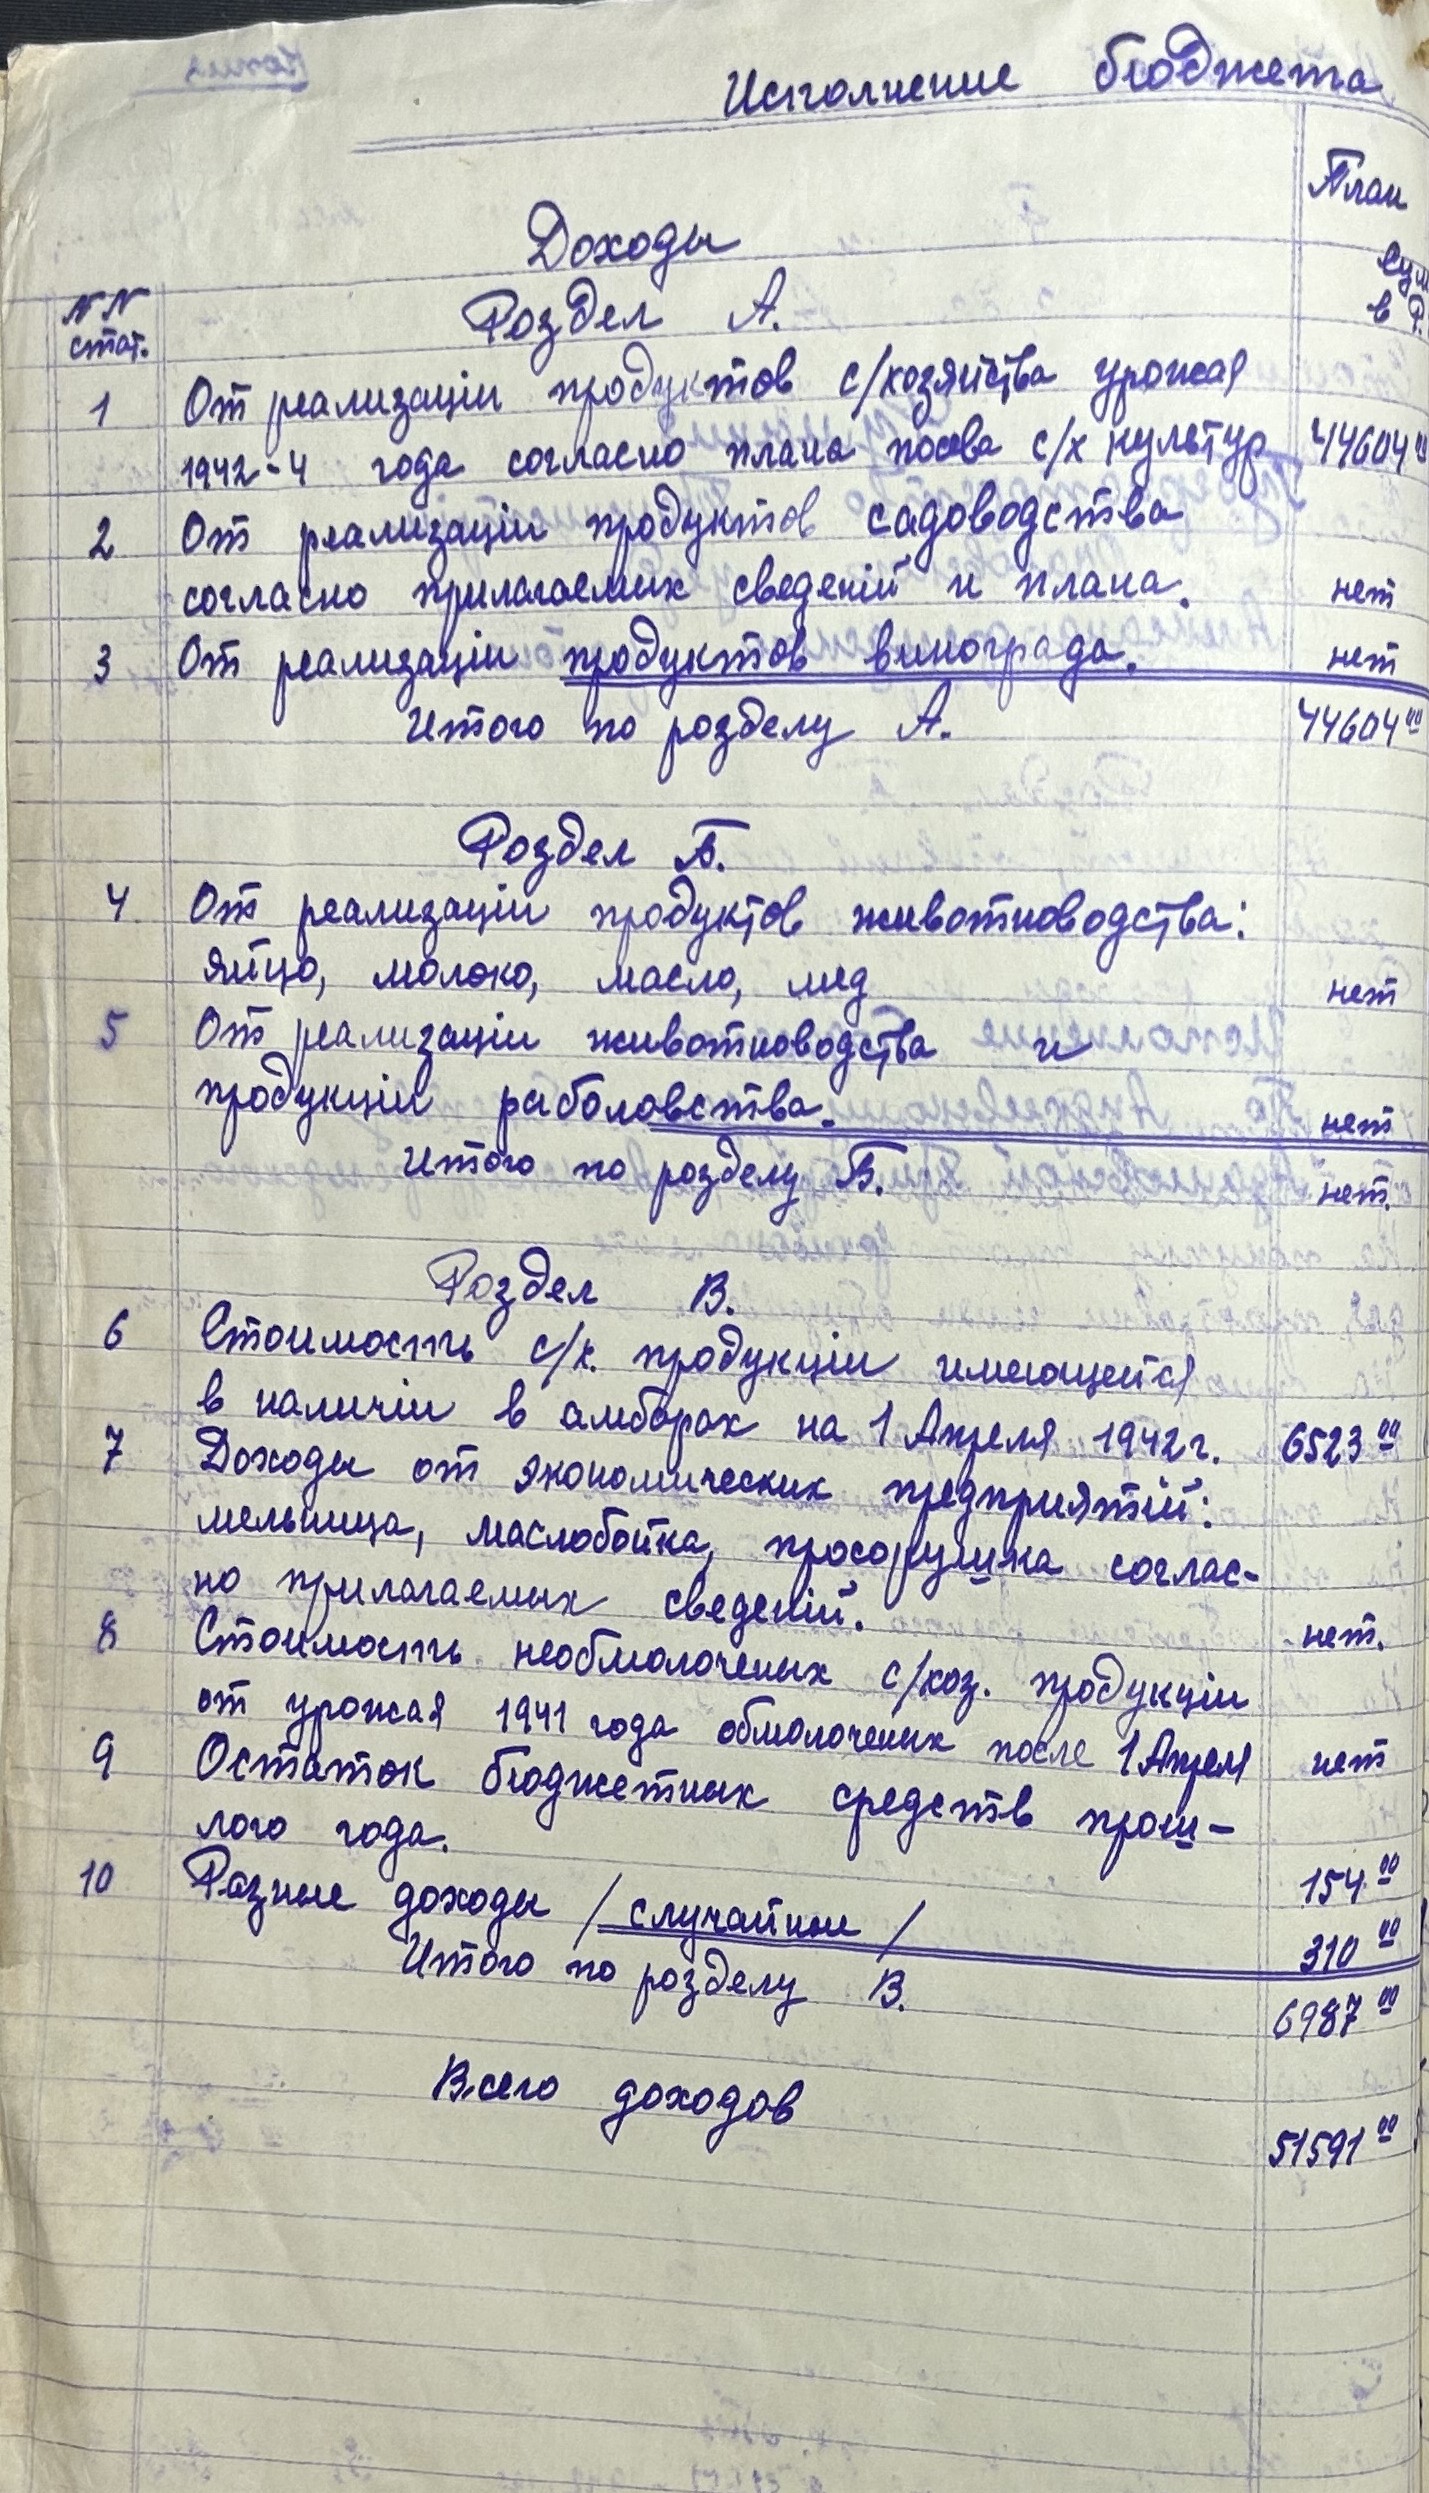 Исполнение бюджета
План
Доходы
сум
в Р.
NN
стат.
Роздел А.
1 От реализаціи продуктов с/хозяйства урожая
1942-4 года согласно плана посева с/х культур 44604 00
2 От реализаціи продуктов садоводства
согласно прилагаемых сведеній и плана. нет
3 От реализаціи продуктов винограда. нет
Итого по розделу А. 44604 00
Роздел Б.
4 От реализаціи продуктов животноводства:
яйцо, молоко, масло, мед нет
5 От реализаціи животноводства и
продукціи раболовства. нет
Итого по розделу Б. нет.
Роздел В.
6 Стоимость с/х. продукціи имеющейся
в наличіи в амборах на 1 Апреля 1942 г. 6523 00
7 Доходы от экономических предпріятій:
мельница, маслобойка, просорушка соглас-
но прилагаемых сведеній. нет.
8 Стоимость необмолоченых с/хоз. продукціи
от урожая 1941 года обмолоченых после 1 Апреля нет
9 Остаток бюджетных средств прош-
лого года. 154 00
10 Разные доходы / случайные / 310 00
Итого по розделу В. 6987 00
Всего доходов 51591 00